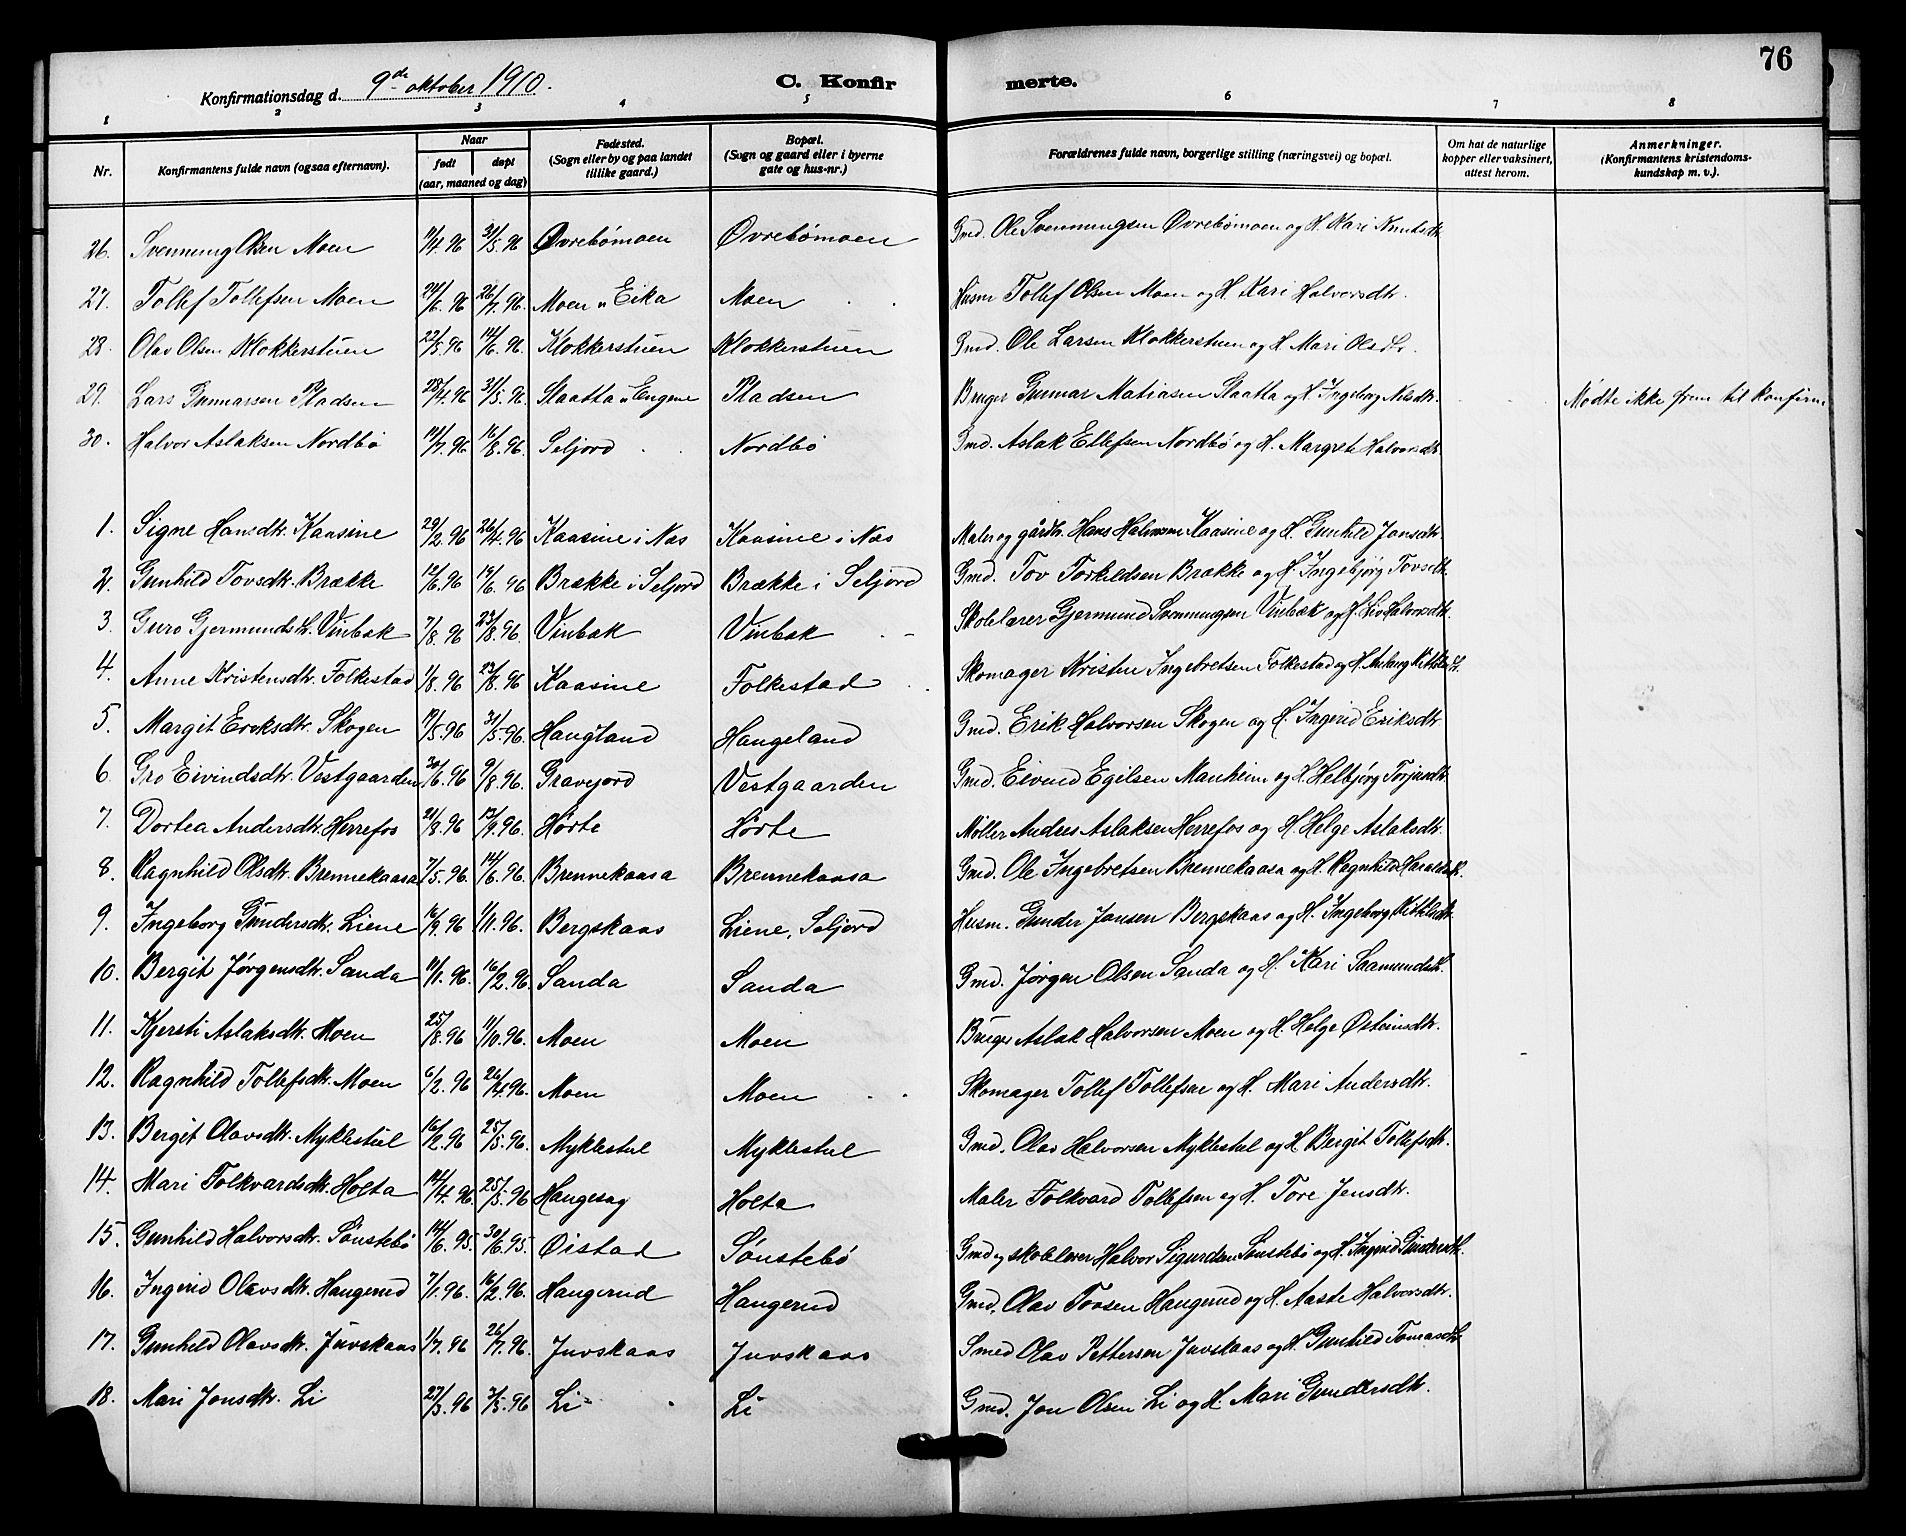 76
Konfirmationsdag d. 9de oktober 1910. C. Konfirmerte.
1 2 3 4 5 6 7 8
Nr. Konfirmantens fulde navn (ogsaa efternavn). Naar født døpt (aar, maaned og dag) Fødested. (Sogn eller by og paa landet tillike gaard.) Bopæl. (Sogn og gaard eller i byerne gate og hus-nr.) Forældrenes fulde navn, borgerlige stilling (næringsvei) og bopæl. Om hat de naturlige kopper eller vaksinert, attest herom. Anmerkninger. (Konfirmantens kristendomskundskap m. v.).
26. Svennung Olsen Moen 11/4. 96 31/5. 96 Øvrebømoen Øvrebømoen Gmd. Ole Svennungsen Øvrebømoen og H. Kari Knutsdtr
27. Tollef Tollefsen Moen 24/6. 96 26/7. 96. Moen u. Eika Moen Husm Tollef Olsen Moen og H. Kari Halvorsdtr.
28. Olav Olsen Klokkerstuen 22/5. 96 14/6. 96. Klokkerstuen Klokkerstuen Gmd. Ole Larsen Klokkerstuen og H. Mari Olsdtr.
29. Lars Gunnarsen Pladsen 28/4. 96 31/5. 96. Slaatta u. Engene Pladsen Bruger Gunnar Matiasen Slaatta og H. Ingeborg Nilsdtr. Mødte ikke frem til konfirm
30. Halvor Aslaksen Nordbø 14/7. 96 16/8. 96. Seljord Nordbø Gmd. Aslak Ellefsen Nordbø og H. Margrete Halvorsdtr
1. Signe Hansdtr. Kaasine 29/2. 96 26/4. 96 Kaasine i Nes Kaasine i Nes Maler og gårdbr. Hans Halvorsen Kaasine og H. Gunhild Jonsdtr
2. Gunhild Tovsdtr. Brække 12/6. 96 14/6. 96 Brække i Seljord Brække i Seljord Gmd. Tov Torkildsen Brække og H. Ingebjørg Tovsdtr.
3. Guro Gjermundsdtr. Vinbæk 7/8. 96 23/8. 96. Vinbæk Vinbæk Skolelærer Gjermund Svennungsen Vinbæk og H. Liv Halvorsdtr.
4. Anne Kristensdtr. Folkestad 1/8. 96 23/8. 96 Kaasine Folkestad Skomager Kristen Ingebretsen Folkestad og H. Aslaug Kittilsdtr.
5. Margit Eriksdtr. Skogen 17/5. 96 31/5. 96. Haugland Haugeland Gmd. Erik Halvorsen Skogen og H. Ingerid Eriksdtr
6. Gro Eivindsdtr. Vestgaarden 30/6. 96 9/8. 96. Gravejord Vestgaarden Gmd. Eivind Egilsen Manheim og H. Helbjørg Torjusdtr.
7. Dortea Andersdtr. Herrefos 21/8. 96 13/9. 96. Hørte Hørte Møller Andres Aslaksen Herrefos og H. Helge Aslaksdtr.
8. Ragnhild Olsdtr. Brennekaasa 7/5. 96. 14/6. 96. Brennekaasa Brennekaasa Gmd. Ole Ingebretsen Brennekaasa og H. Ragnhild Haraldsdtr.
9. Ingeborg Gundersdtr. Liene 16/9. 96 1/11. 96. Bergskaas Liene, Seljord Husm. Gunder Jonsen Bergskaas og H. Ingeborg Kittilsdtr
10. Bergit Jørgensdtr. Sanda 11/1. 96. 16/2. 96. Sanda Sanda Gmd. Jørgen Olsen Sanda og H. Kari Saamundsdtr.
11. Kjersti Aslaksdtr. Moen 25/8. 96 11/10. 96. Moen Moen Bruger Aslak Halvorsen Moen og H. Helge Østeinsdtr.
12. Ragnhild Tollefsdtr. Moen 6/2. 96 26/4. 96. Moen Moen Skomager Tollef Tollefsen og H. Mari Andersdtr.
13. Bergit Olavsdtr. Myklestul 16/2. 96 25/5. 96. Myklestul Myklestul Gmd. Olav Halvorsen Myklestul og H. Bergit Tollefsdtr.
14. Mari Folkvardsdtr. Holta 14/4. 96. 25/5. 96 Haugesag Holta Maler Folkvard Tollefsen og H. Tore Jensdtr.
15. Gunhild Halvorsdtr. Sønstebø 14/6. 95. 30/6. 95. Øistad Sønstebø Gmd og skolelærer Halvor Sigurdsen Sønstebø og H. Ingerid Gundersdtr.
16. Ingerid Olavsdtr. Haugerud 7/1. 96. 16/2. 96. Haugerud Haugerud Gmd. Olav Tovsen Haugerud og H. Aaste Halvorsdtr.
17. Gunhild Olavsdtr. Juvskaas 1/7. 96 26/7. 96. Juvskaas Juvskaas Smed Olav Pettersen Juvskaas og H. Gunhild Tomasdtr
18. Mari Jonsdtr. Li 27/3. 96 3/5. 96 Li Li Gmd. Jon Olsen Li og H. Mari Gundersdtr.